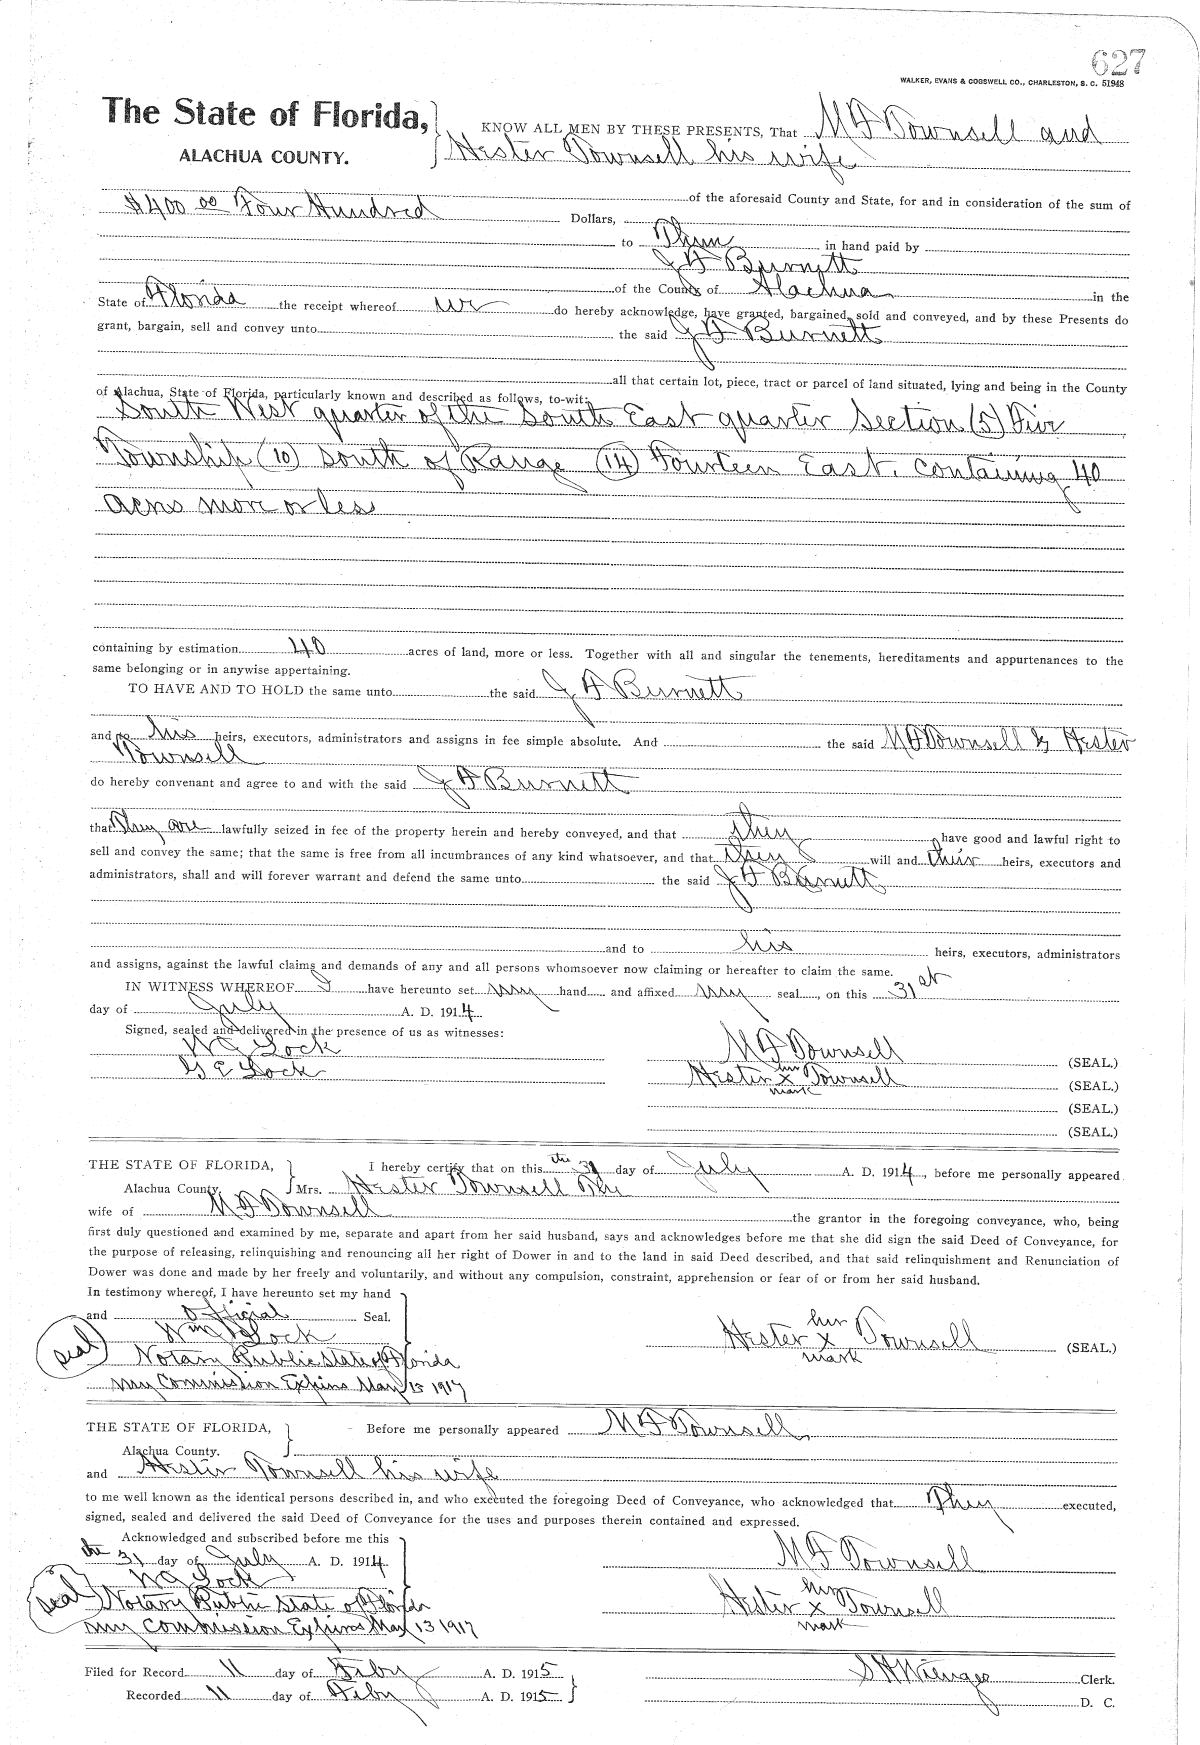 627
WALKER, EVANS & COGSWELL CO., CHARLESTON, S. C. 51948
The State of Florida, KNOW ALL MEN BY THESE PRESENTS, That M F Townsell and
ALACHUA COUNTY. Hester Townsell his wife
of the aforesaid County and State, for and in consideration of the sum of
$400 00 Four Hundred Dollars,
to Them in hand paid by
J F Burnett
of the County of Alachua in the
State of Florida the receipt whereof we do hereby acknowledge, have granted, bargained, sold and conveyed, and by these Presents do
grant, bargain, sell and convey unto the said J F Burnett
all that certain lot, piece, tract or parcel of land situated, lying and being in the County
of Alachua, State of Florida, particularly known and described as follows, to-wit:
South West quarter of the South East quarter Section (5) Five
Township (10) South of Range (14) Fourteen East. Containing 40
acres more or less
containing by estimation 40 acres of land, more or less. Together with all and singular the tenements, hereditaments and appurtenances to the
same belonging or in anywise appertaining.
TO HAVE AND TO HOLD the same unto the said J F Burnett
and to his heirs, executors, administrators and assigns in fee simple absolute. And the said M F Townsell & Hester
Townsell
do hereby convenant and agree to and with the said J F Burnett
that They are lawfully seized in fee of the property herein and hereby conveyed, and that they have good and lawful right to
sell and convey the same; that the same is free from all incumbrances of any kind whatsoever, and that they will and their heirs, executors and
administrators, shall and will forever warrant and defend the same unto the said J F Burnett
and to his heirs, executors, administrators
and assigns, against the lawful claims and demands of any and all persons whomsoever now claiming or hereafter to claim the same.
IN WITNESS WHEREOF I have hereunto set my hand and affixed my seal, on this 31st
day of July A. D. 1914
Signed, sealed and delivered in the presence of us as witnesses:
W G Lock M F Townsell (SEAL.)
G E Lock Hester her x mark Townsell (SEAL.)
(SEAL.)
(SEAL.)
THE STATE OF FLORIDA, I hereby certify that on this the 31 day of July A. D. 1914, before me personally appeared
Alachua County Mrs. Hester Townsell The
wife of M F Townsell the grantor in the foregoing conveyance, who, being
first duly questioned and examined by me, separate and apart from her said husband, says and acknowledges before me that she did sign the said Deed of Conveyance, for
the purpose of releasing, relinquishing and renouncing all her right of Dower in and to the land in said Deed described, and that said relinquishment and Renunciation of
Dower was done and made by her freely and voluntarily, and without any compulsion, constraint, apprehension or fear of or from her said husband.
In testimony whereof, I have hereunto set my hand
and official Seal.
Wm Lock Hester her x mark Townsell (SEAL.)
seal Notary Public State of Florida
my Commission Expires May 13 1917
THE STATE OF FLORIDA, Before me personally appeared M F Townsell
Alachua County.
and Hester Townsell his wife
to me well known as the identical persons described in, and who executed the foregoing Deed of Conveyance, who acknowledged that They executed,
signed, sealed and delivered the said Deed of Conveyance for the uses and purposes therein contained and expressed.
Acknowledged and subscribed before me this
the 31 day of July A. D. 1914 M F Townsell
W G Lock
seal Notary Public State of Florida Hester her x mark Townsell
my Commission Expires May 13 1917
Filed for Record 11 day of Feby A. D. 1915 S H Wienges Clerk.
Recorded 11 day of Feby A. D. 1915 D. C.